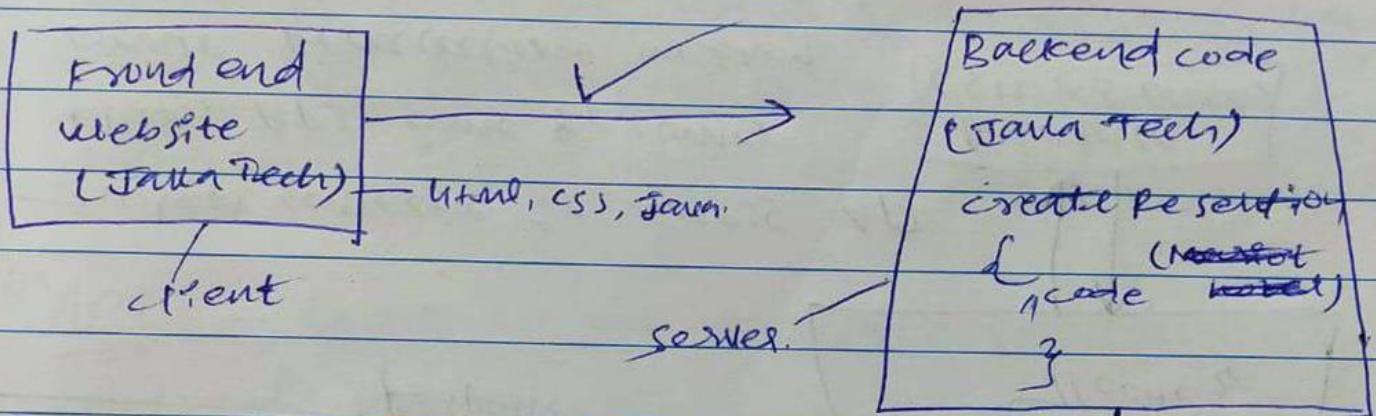 Frond end
website
(Java Tech) — Html, css, Java.
client
Backend code
(Java Tech)
create Resevtion
{
code
}
server.